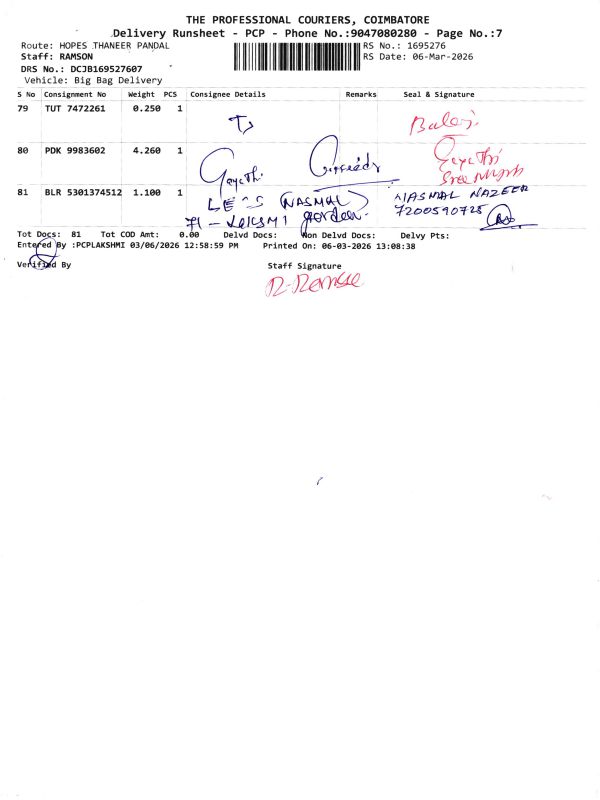 THE PROFESSIONAL COURIERS, COIMBATORE
Delivery Runsheet - PCP - Phone No.:9047080280 - Page No.:7
Route: HOPES THANEER PANDAL RS No.: 1695276
Staff: RAMSON RS Date: 06-Mar-2026
DRS No.: DCJB169527607
Vehicle: Big Bag Delivery
S No Consignment No Weight PCS Consignee Details Remarks Seal & Signature
79 TUT 7472261 0.250 1
Balaji
80 PDK 9983602 4.260 1
Gayathri
81 BLR 5301374512 1.100 1
(NASMAL) NASMAL NAZEER
71 - garden. 7200590725
Tot Docs: 81 Tot COD Amt: 0.00 Delvd Docs: Non Delvd Docs: Delvy Pts:
Entered By :PCPLAKSHMI 03/06/2026 12:58:59 PM Printed On: 06-03-2026 13:08:38
Verified By Staff Signature